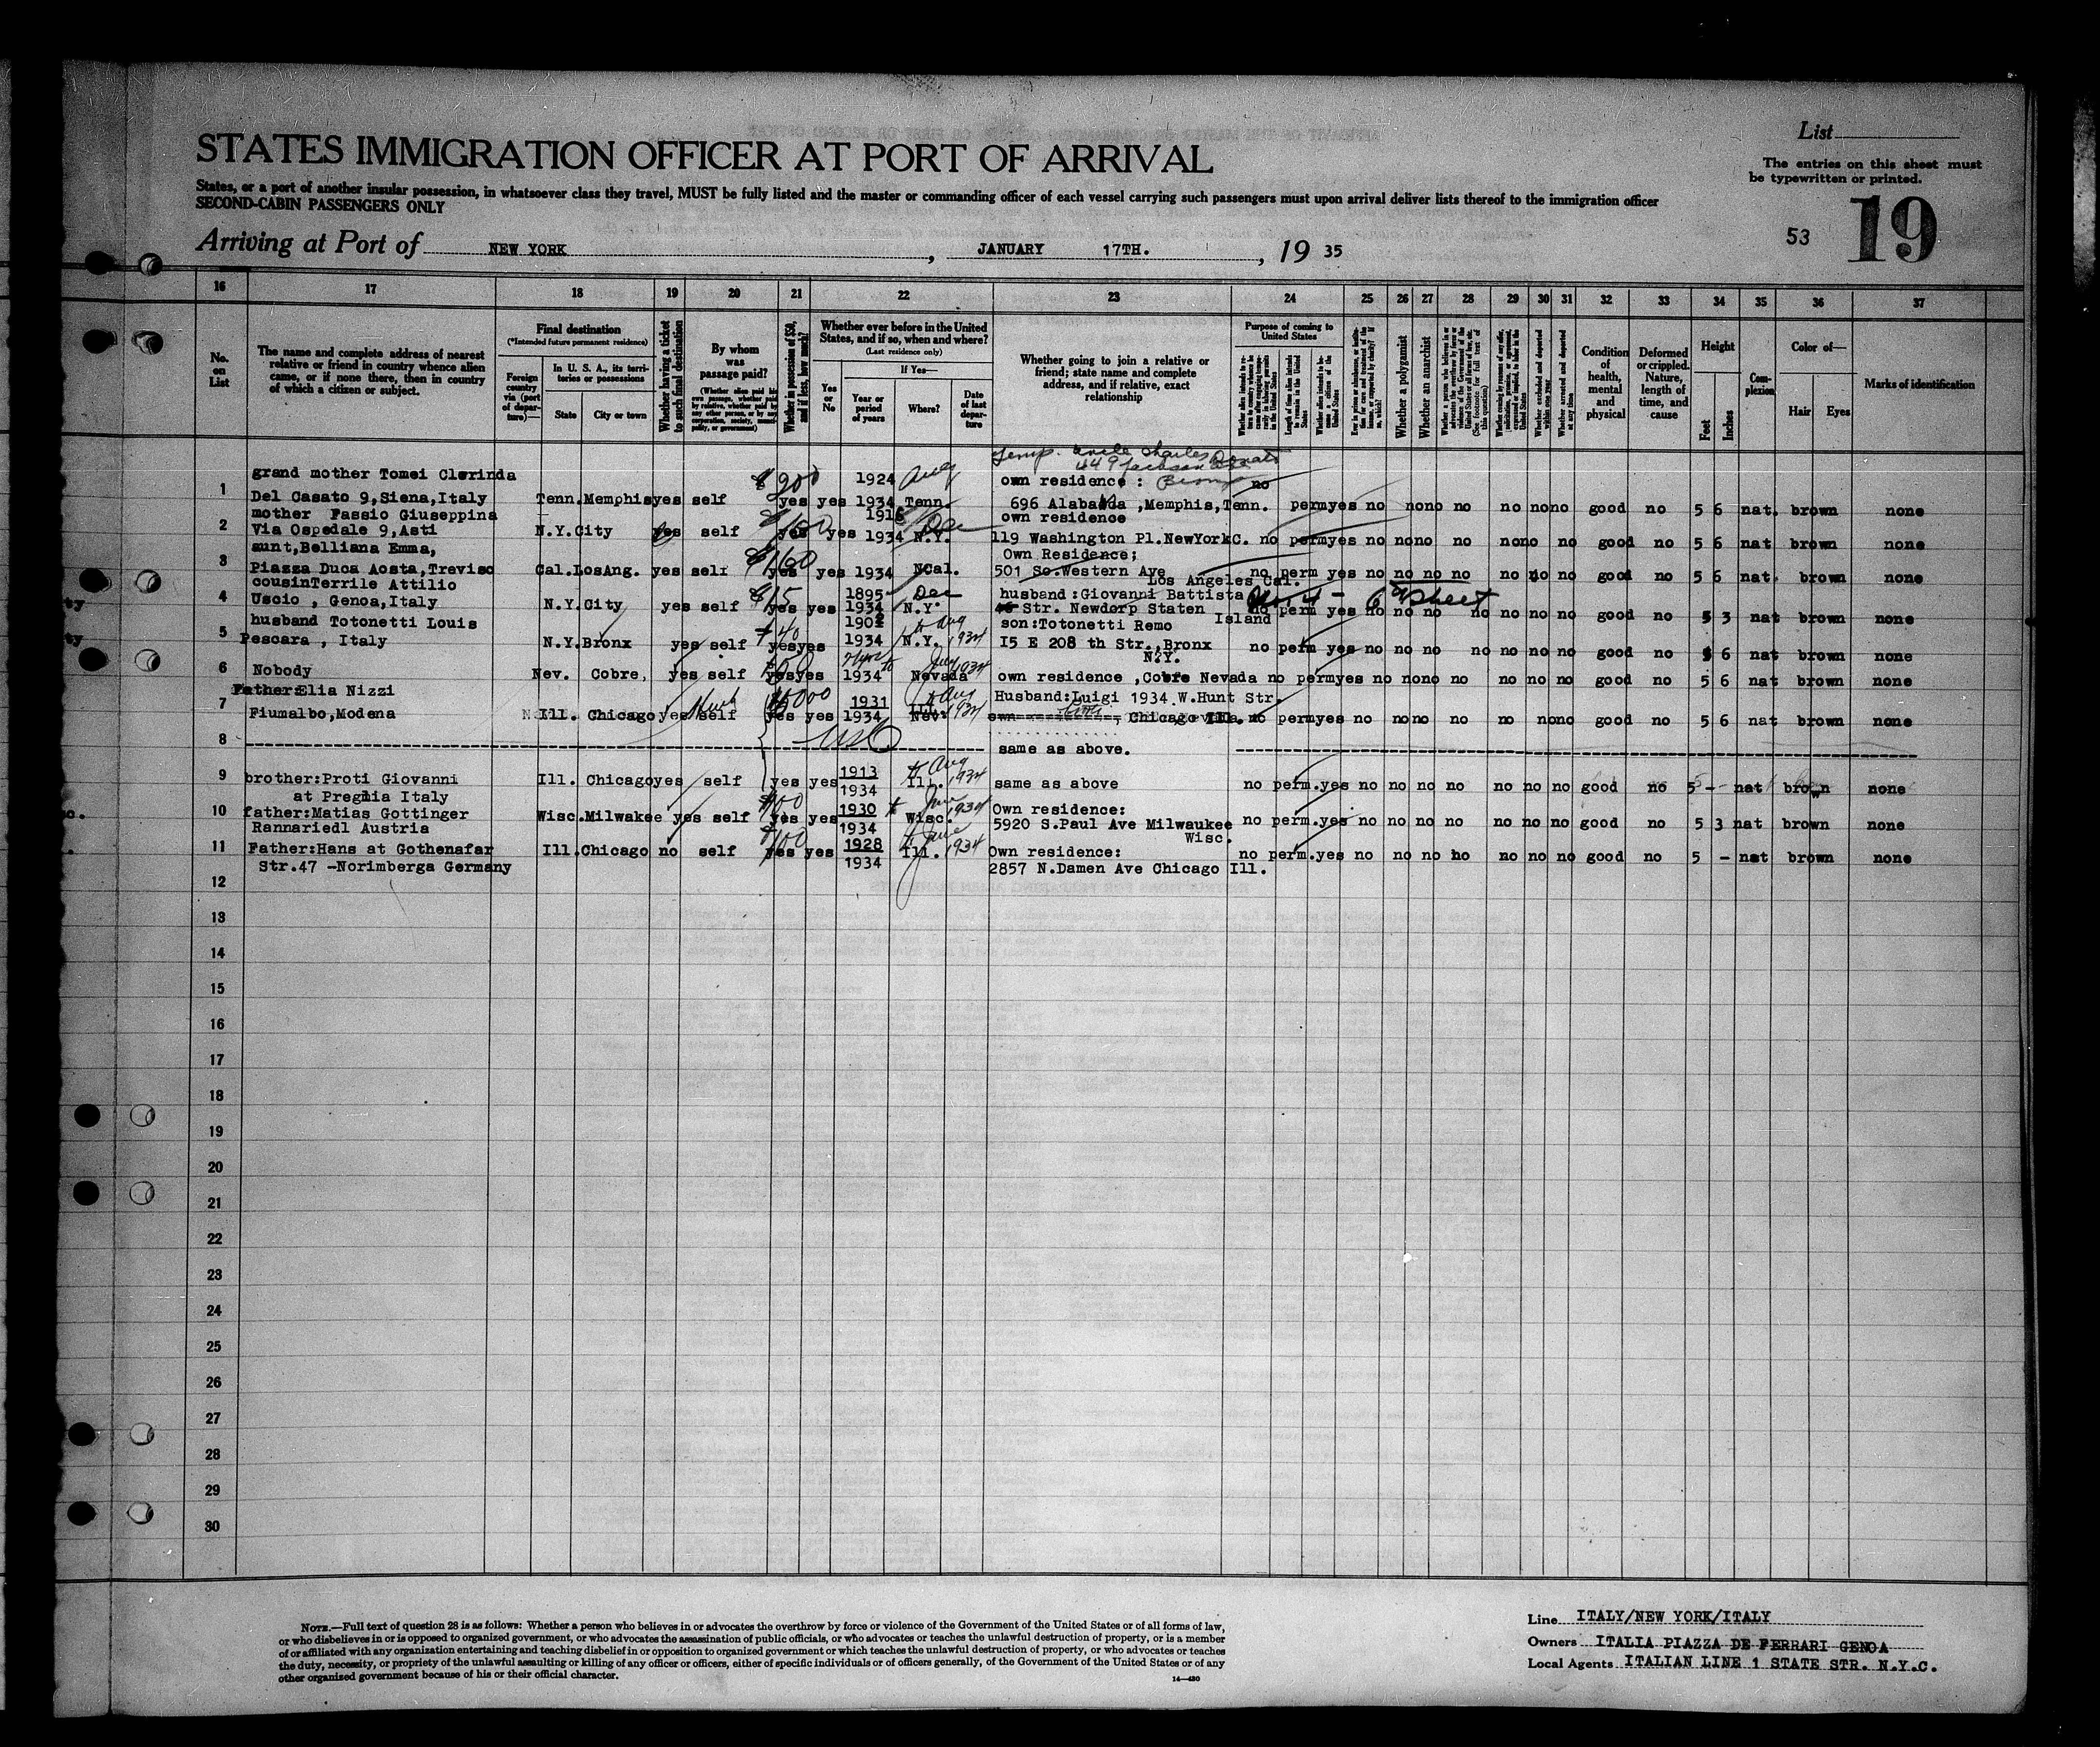 List
The entries on this sheet must
be typewritten or printed.
STATES IMMIGRATION OFFICER AT PORT OF ARRIVAL
States, or a port of another insular possession, in whatsoever class they travel, MUST be fully listed and the master or commanding officer of each vessel carrying such passengers must upon arrival deliver lists thereof to the immigration officer
SECOND-CABIN PASSENGERS ONLY
53 19
Arriving at Port of NEW YORK, JANUARY 17TH., 19 35
16 17 18 19 20 21 22 23 24 25 26 27 28 29 30 31 32 33 34 35 36 37
No. on List
The name and complete address of nearest relative or friend in country whence alien came, or if none there, then in country of which a citizen or subject.
Final destination
(*Intended future permanent residence)
Foreign country via (port of departure)—
In U. S. A., its territories or possessions
State
City or town
Whether having a ticket to such final destination
By whom was passage paid?
Whether in possession of $50, and if less, how much?
Whether ever before in the United States, and if so, when and where?
(Last residence only)
Yes or No
If Yes—
Year or period of years
Where?
Date of last departure
Whether going to join a relative or friend; state name and complete address, and if relative, exact relationship
Purpose of coming to United States
Whether a polygamist
Whether an anarchist
Condition of health, mental and physical
Deformed or crippled. Nature, length of time, and cause
Height
Feet
Inches
Complexion
Color of—
Hair
Eyes
Marks of identification
Temp. uncle Charles Donato
449 Jackson
grand mother Tomei Clerinda 1924 Aug own residence : no
1 Del Casato 9,Siena,Italy Tenn.Memphis yes self $200 yes yes 1934 Tenn. 696 Alabama ,Memphis,Tenn. perm yes no no no no no no no good no 5 6 nat. brown none
mother Fassio Giuseppina own residence
2 Via Ospedale 9,Asti N.Y.City yes self yes yes 1934 Dec N.Y. 119 Washington Pl.NewYorkC. no perm yes no no no no no no no good no 5 6 nat brown none
aunt,Belliana Emma, Own Residence;
3 Piazza Duca Aosta,Treviso Cal.LosAng. yes self $160 yes yes 1934 Cal. 501 So.Western Ave no perm yes no no no no no no no good no 5 6 nat. brown none
Los Angeles Cal.
cousinTerrile Attilio 1895 Dec husband :Giovanni Battista No. 4 - 6 sheet
4 Uscio , Genoa,Italy N.Y.City yes self $15 yes yes 1934 N.Y. Str. Newdorp Staten no perm yes no no no no no no no good no 5 3 nat brown none
Island
husband Totonetti Louis Aug son:Totonetti Remo
5 Pescara , Italy N.Y.Bronx yes self 40 yes yes 1934 N.Y. 1934 I5 E 208 th Str.,Bronx no perm yes no no no no no no no good no 6 nat brown none
N.Y.
6 Nobody Nev. Cobre, yes self yes yes 1934 Nevada 1934 own residence ,Cobre Nevada no perm yes no no no no no no no good no 5 6 nat brown none
Father:Elia Nizzi 1931 Aug Husband:Luigi 1934 W.Hunt Str.
7 Fiumalbo,Modena Ill. Chicago yes self yes yes 1934 Nev. 1934 own , Chicago Ill. no perm yes no no no no no no no good no 5 6 nat brown none
8 USC same as above.
1913 Aug
9 brother:Proti Giovanni Ill. Chicago yes self yes yes Ill. 1934 same as above no perm.yes no no no no no no no good no 5 - nat brown none
at Preghia Italy 1934
1930 Own residence:
10 father:Matias Gottinger Wisc.Milwakee yes self $100 yes yes Wisc. 1934 5920 S.Paul Ave Milwaukee no perm.yes no no no no no no no good no 5 3 nat brown none
Rannariedl Austria 1934 Wisc.
1928 June
11 Father:Hans at Gothenafar Ill.Chicago no self $100 yes yes Ill. 1934 Own residence: no perm.yes no no no no no no no good no 5 - nat brown none
Str.47 -Norimberga Germany 1934 2857 N.Damen Ave Chicago Ill.
12
13
14
15
16
17
18
19
20
21
22
23
24
25
26
27
28
29
30
NOTE.—Full text of question 28 is as follows: Whether a person who believes in or advocates the overthrow by force or violence of the Government of the United States or of all forms of law,
or who disbelieves in or is opposed to organized government, or who advocates the assassination of public officials, or who advocates or teaches the unlawful destruction of property, or is a member
of or affiliated with any organization entertaining and teaching disbelief in or opposition to organized government or which teaches the unlawful destruction of property, or who advocates or teaches
the duty, necessity, or propriety of the unlawful assaulting or killing of any officer or officers, either of specific individuals or of officers generally, of the Government of the United States or of any
other organized government because of his or their official character.
14—430
Line ITALY/NEW YORK/ITALY
Owners ITALIA PIAZZA DE FERRARI GENOA
Local Agents ITALIAN LINE 1 STATE STR. N.Y.C.